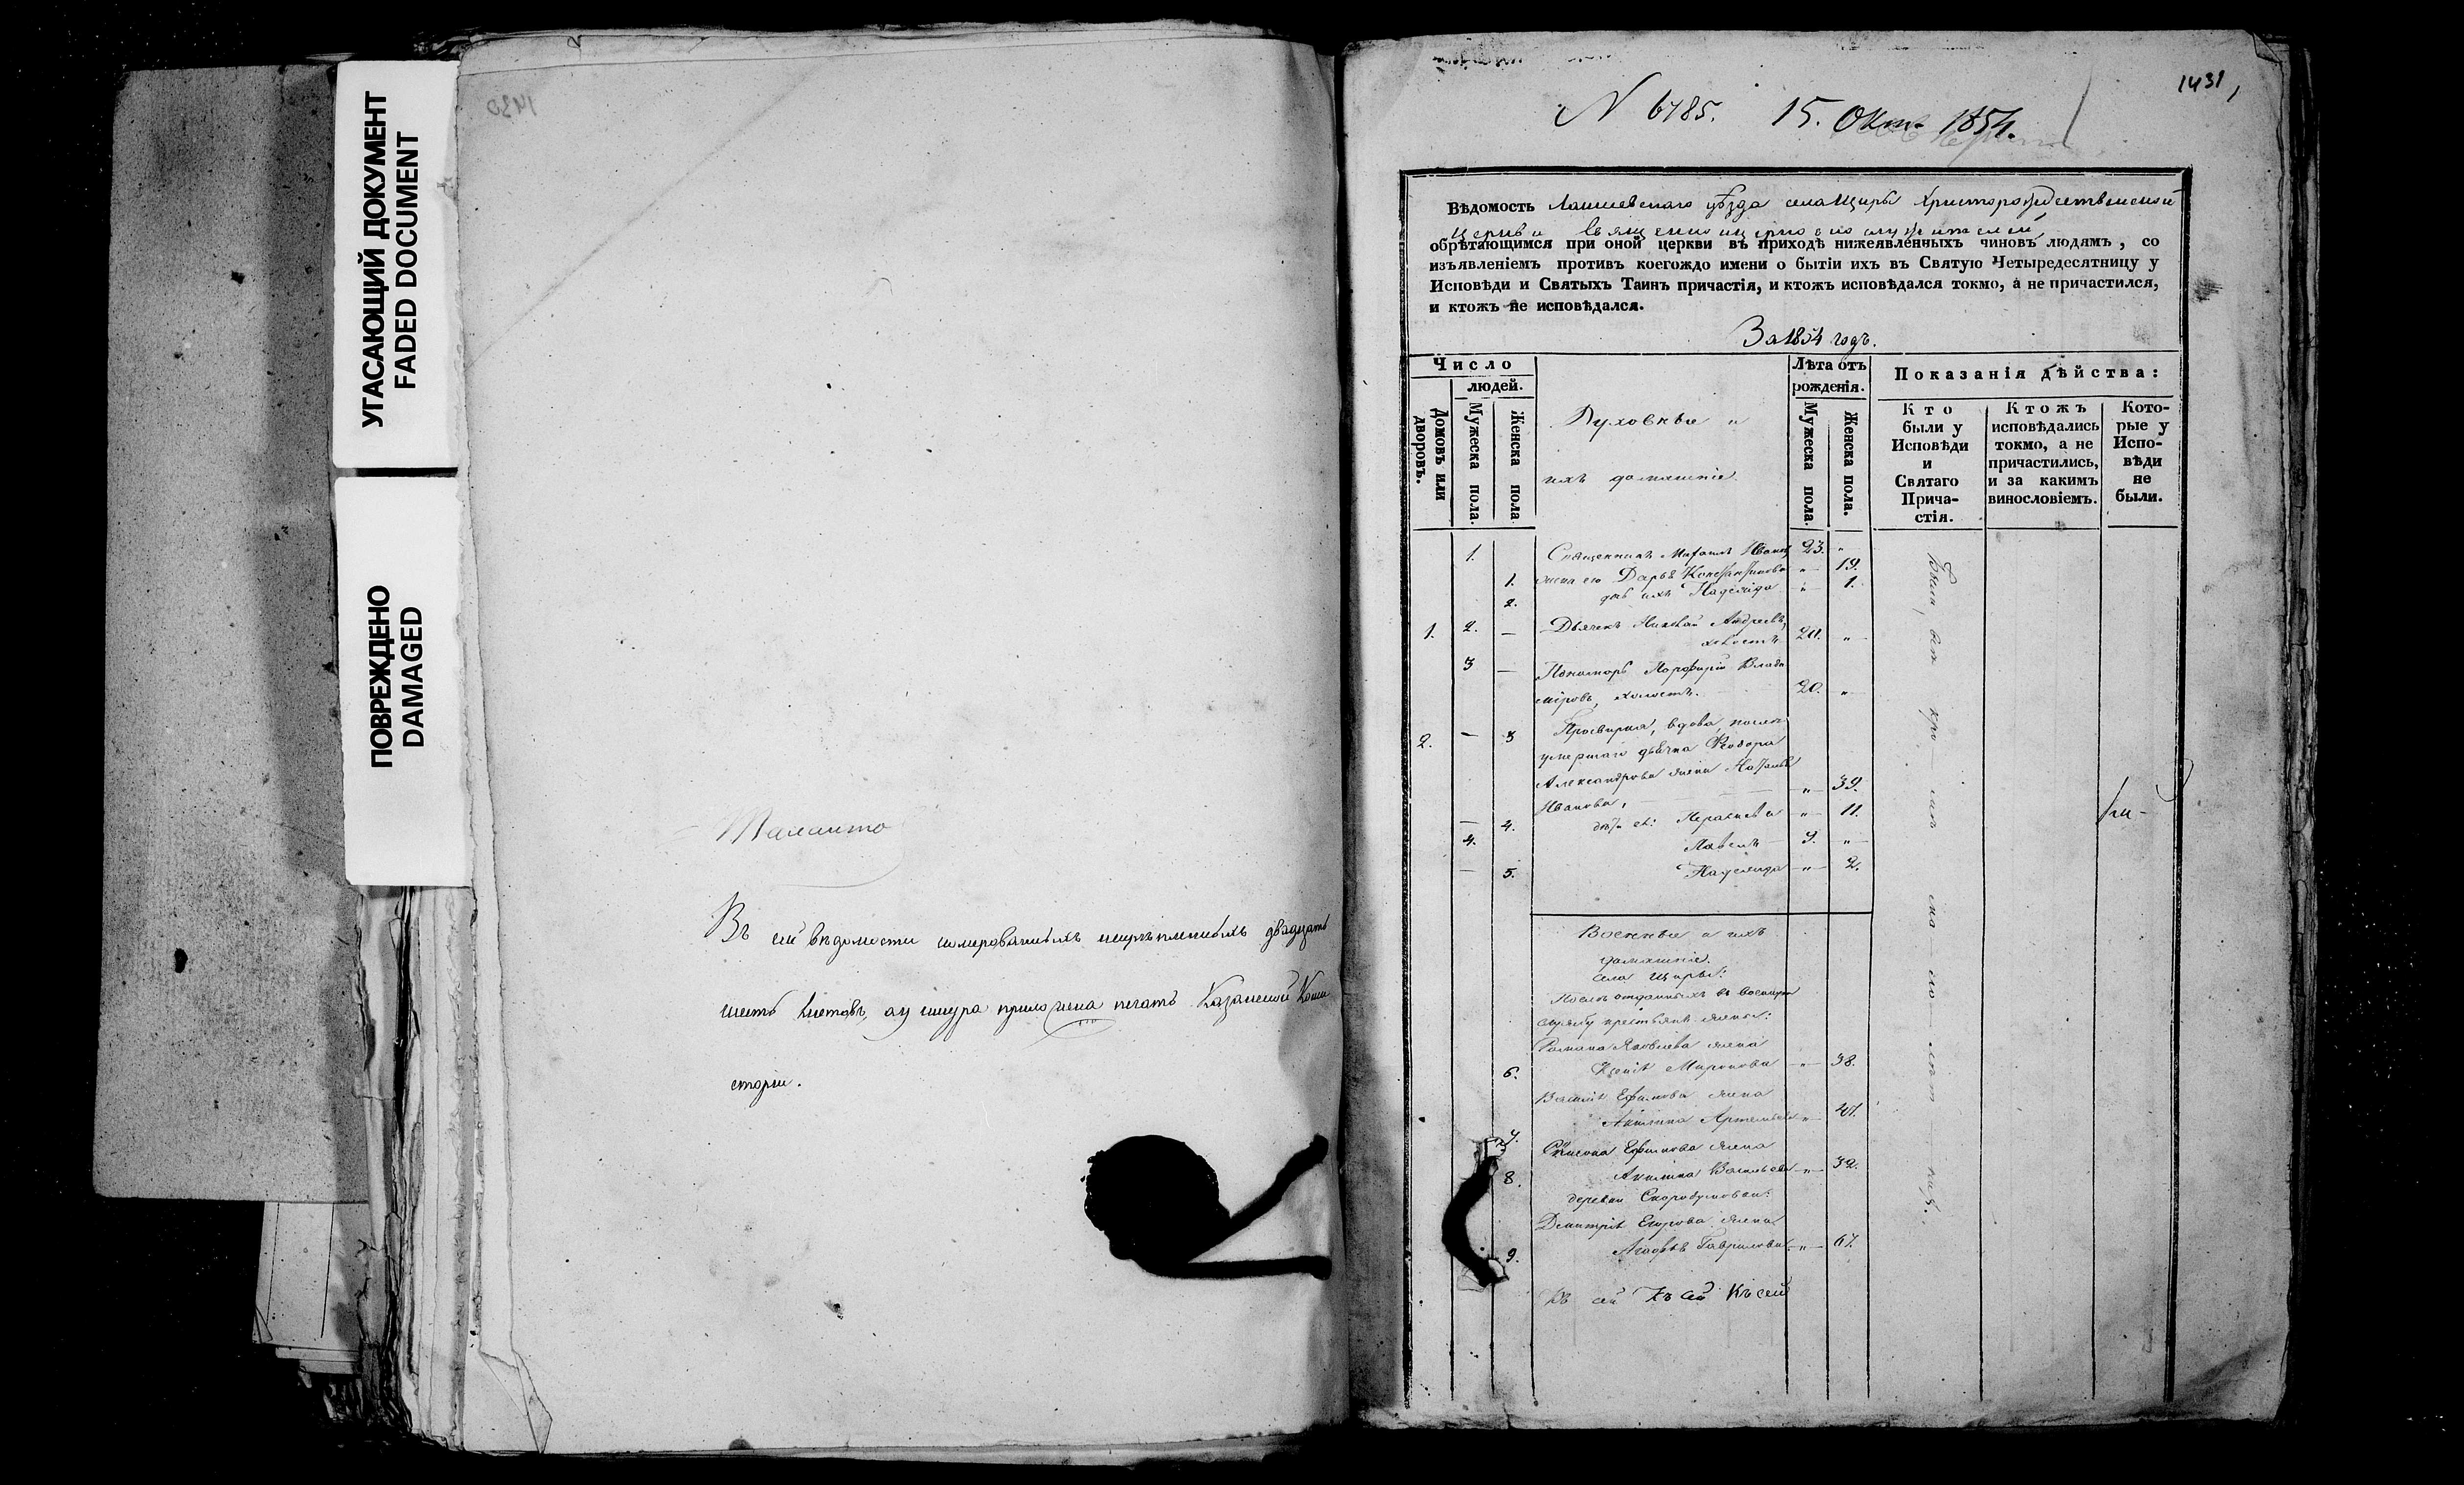 УГАСАЮЩИЙ ДОКУМЕНТ
FADED DOCUMENT
ПОВРЕЖДЕНО
DAMAGED
1430
Въ сей вѣдомости нумерованныхъ двадцать
шесть листовъ, а у шнура приложена печать Казанской Конси
сторіи.
1431
N 6785. 15. Окт. 1854.
Вѣдомость Лаишевскаго уѣзда села Христорождественской
церкви священноцерковнослужителей,
обрѣтающимся при оной церкви въ приходѣ нижеявленныхъ чиновъ людямъ, со
изъявленіемъ противъ коегождо имени о бытіи ихъ въ Святую Четыредесятницу у
Исповѣди и Святыхъ Таинъ причастія, и ктожъ исповѣдался токмо, а не причастился,
и ктожъ не исповѣдался.
За 1854 годъ.
Число
людей.
Домовъ или дворовъ.
Мужеска пола.
Женска пола
Духовные и
ихъ домашніе.
Лѣта отъ
рожденія.
Мужеска пола.
Женска пола.
Показанія дѣйства:
Кто
были у
Исповѣди
и
Святаго
Прича-
стія.
Ктожъ
исповѣдались
токмо, а не
причастились,
и за какимъ
винословіемъ.
Кото-
рые у
Испо-
вѣди
не
были.
1. Священникъ Михаилъ 23. "
1. жена его Дарья Константинова " 19.
2. дочь ихъ Надежда " 1.
1. 2. — Дьячекъ Николай Андреевъ,
холостъ 20. "
3 — Пономарь Порфирій Влади
міровъ, холостъ. 20. "
2. — 3 Просвирня, вдова, послѣ
умершаго дьячка Ѳеодора
Александрова жена Наталья
Иванова, " 39.
— 4. дѣти ея: " 11.
4. Павелъ "
— 5. Надежда " 2.
Военные и ихъ
домашніе.
села
Послѣ отданныхъ въ военную
службу крестьянъ жены:
Романа Яковлева жена
6. Ксенія Миронова " 38.
Василія Ефимова жена
7. Акилина "
Ефимова жена
8. Акилина Васильева " 32.
деревни
Димитрія Егорова жена
9. Агафья Гаврилова "
Къ сей Къ сей Къ сей